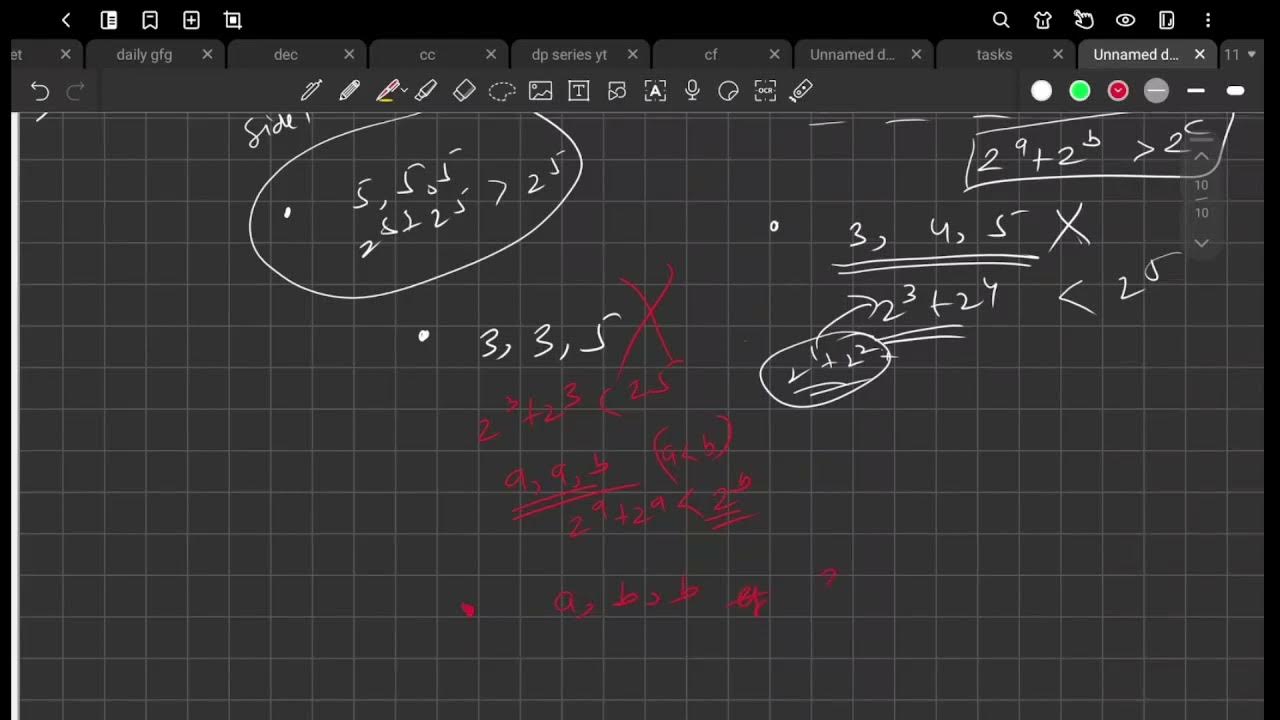 et daily gfg dec cc dp series yt cf Unnamed d... tasks Unnamed d... 11
OCR
side
5, 5, 5
2^5 + 2^5 > 2^5
2^a + 2^b > 2^c
10
10
3, 4, 5 X
2^3 + 2^4 < 2^5
2^1 + 2^2 +
3, 3, 5 X
2^3 + 2^3 < 25
a, a, b (a < b)
2^a + 2^a < 2^b
a, b, b